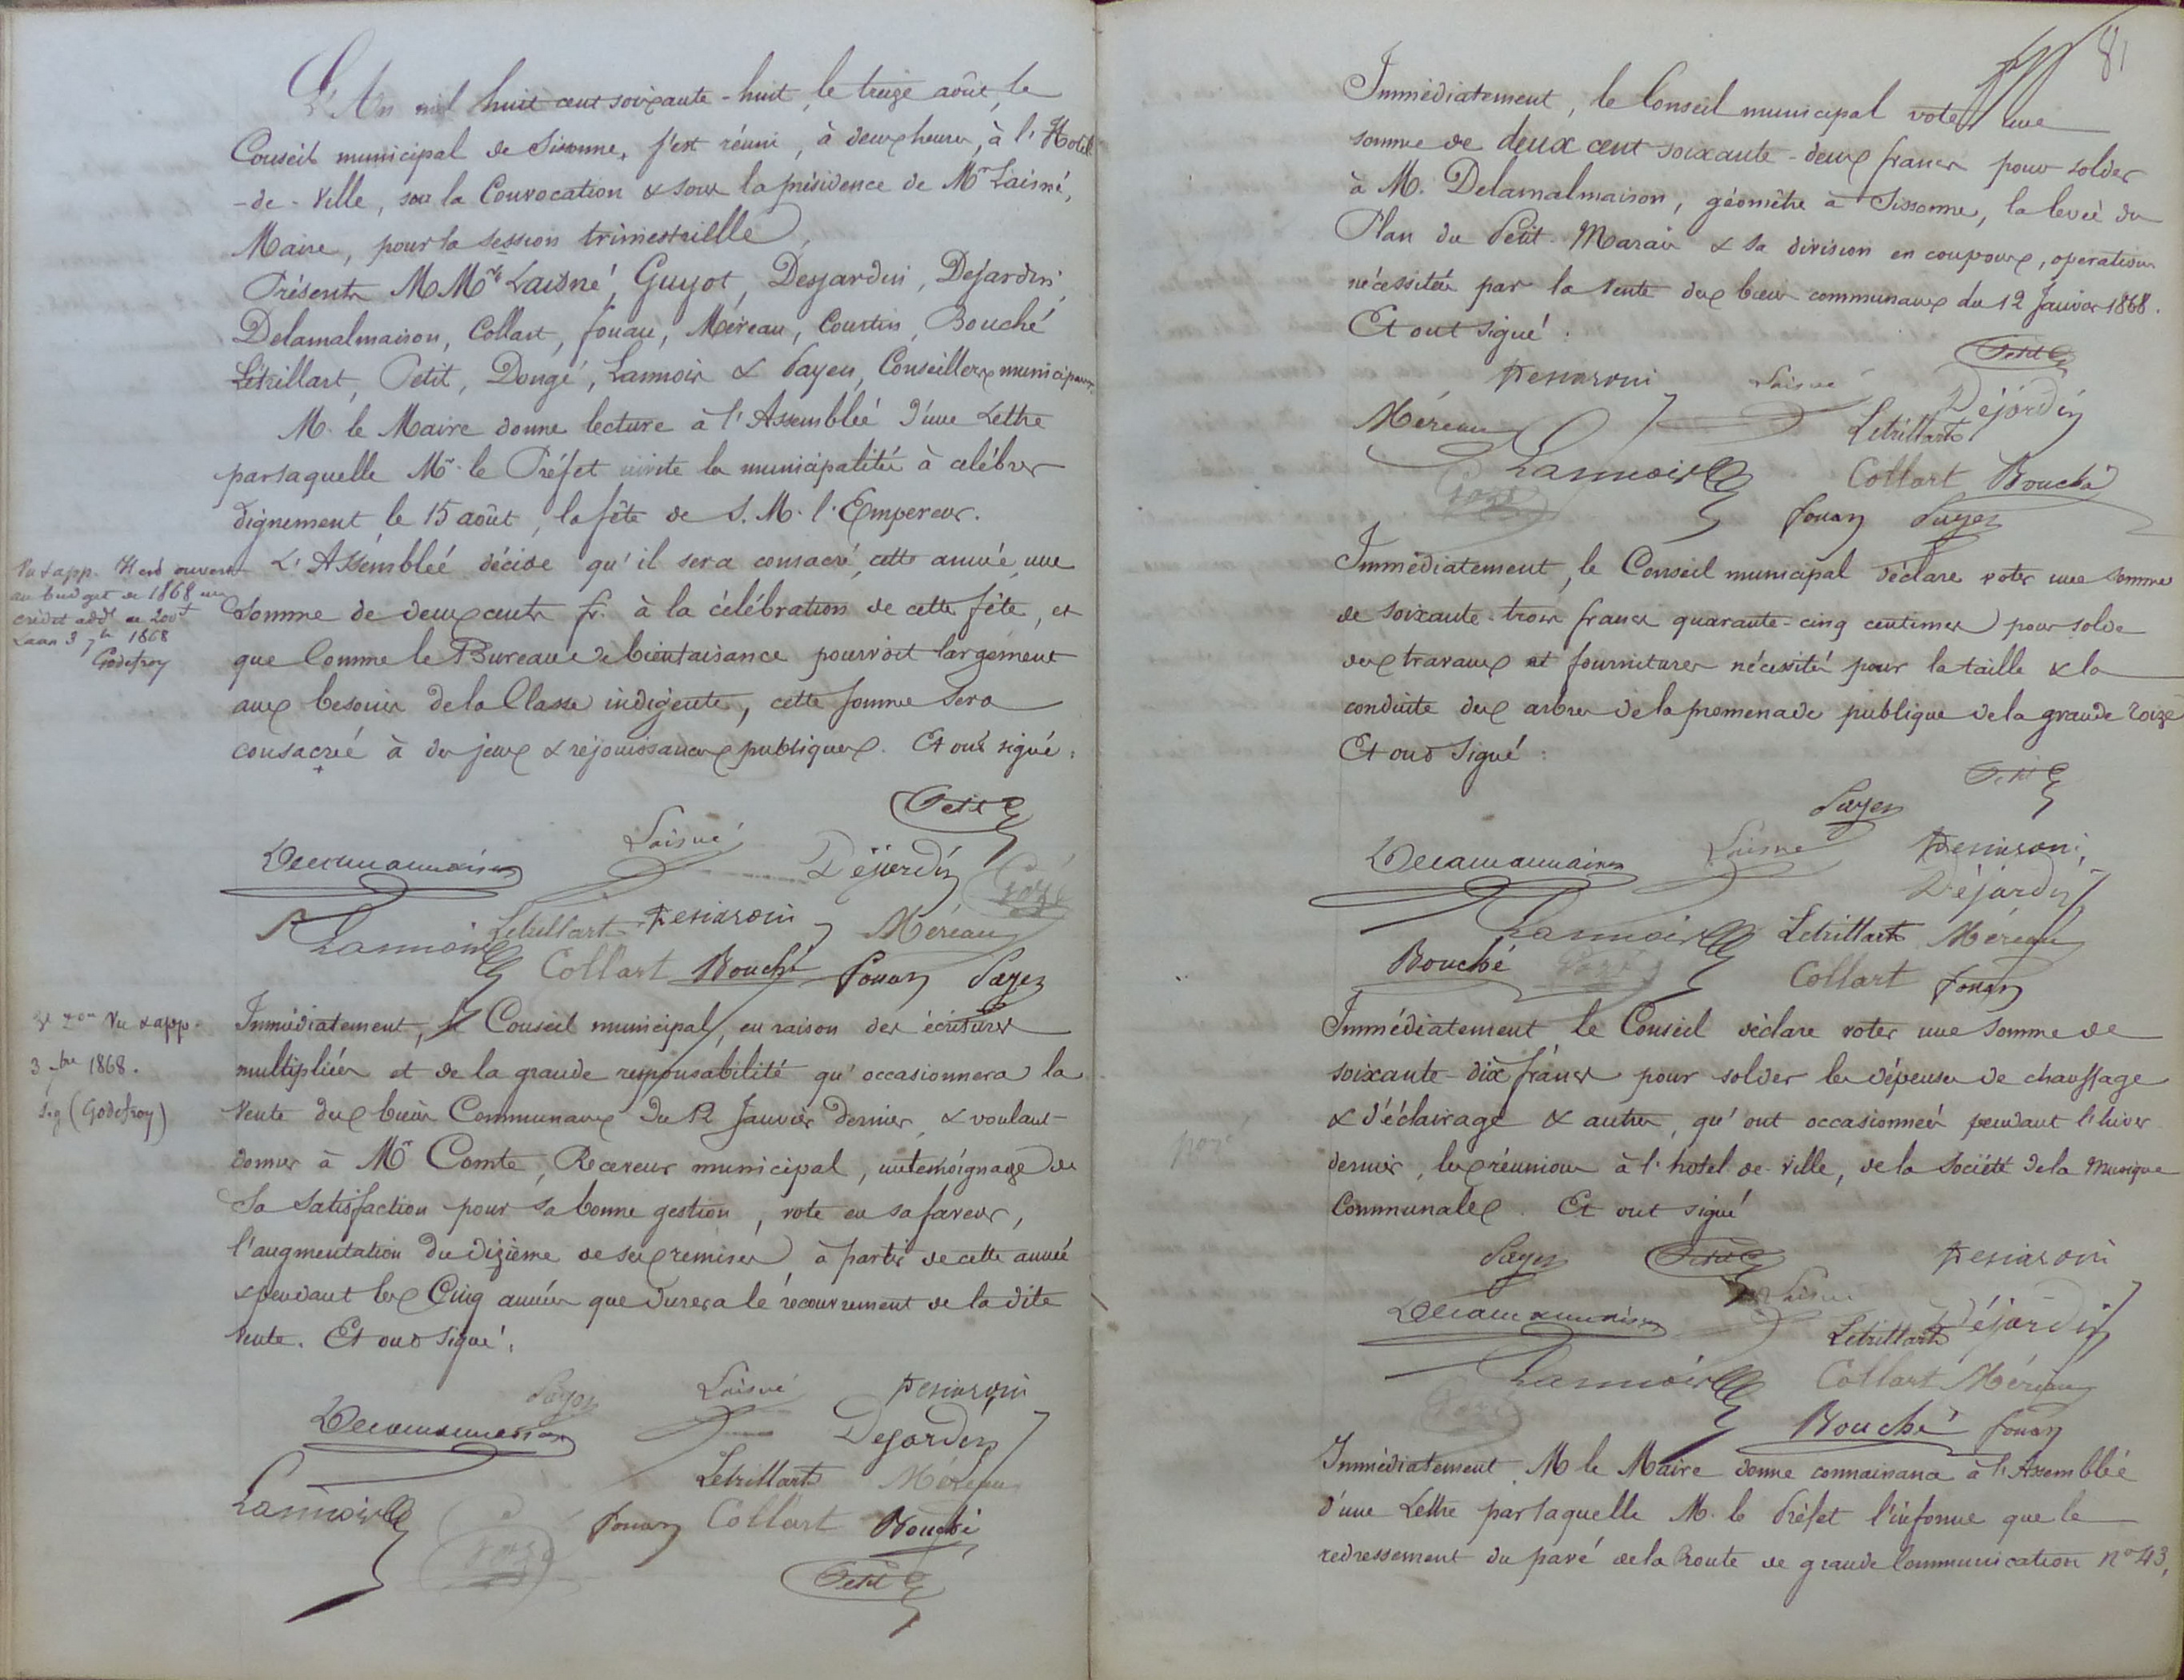 L'An mil huit cent soixante-huit, le treize août, le
Conseil municipal de Sissonne, s'est réuni, à deux heures, à l'Hotel
-de-Ville, sur la Convocation & sous la présidence de Mr Laisné,
Maire, pour la session trimestrielle,
Présents MMrs Laisné, Guyot, Desjardin, Dejardin,
Delamalmaison, Collart, fouan, Méreau, Courtin, Bouché
Létrillart, Petit, Dougé, Lannois & Payen, Conseillers municipaux.
M. le Maire donne lecture à l'Assemblée d'une Lettre
par laquelle Mr le Préfet invite la municipalité à célébrer
dignement le 15 août, la fête de S. M. l'Empereur.
L'Assemblée décide qu'il sera consacré, cette année, une
Somme de deux cents fr. à la célébration de cette fête, et
que Comme le Bureau de bienfaisance pourvoit largement
aux besoins de la Classe indigente, cette somme sera
consacrée à des jeux & réjouissances publiques. Et ont signé:
Vu & app. Il est ouvert
au budget de 1868 un
crédit addl de 200f
Laon 3 7bre 1868
Godefroy
Petit
Laisné
Delamalmaison
Dejardin
Lannois
Letrillart
Méreau
Collart Bouché fouan Payen
Immédiatement, le Conseil municipal, en raison des écritures
multipliées et de la grande responsabilité qu'occasionnera la
Vente des biens Communaux du 12 Janvier dernier, & voulant
donner à Mr Comte, Receveur municipal, un témoignage de
Sa Satisfaction pour sa bonne gestion, vote en sa faveur,
l'augmentation du dizième de ses remises à partir de cette année
& pendant les Cinq années que durera le recouvrement de la dite
Vente. Et ont signé:
Vu & app.
3 7bre 1868.
Sig (Godefroy)
Payen Laisné
Delamalmaison
Dejardin
Letrillart Méreau
Lannois
fouan Collart Bouché
Petit
81
Immédiatement, le Conseil municipal vote une
somme de deux cent soixante-deux francs pour solder
à M. Delamalmaison, géomètre à Sissonne, la levée du
Plan du Petit-Marais & sa division en coupons, opérations
nécessitées par la Vente des biens communaux du 12 Janvier 1868.
Et ont signé:
Petit
Laisné
Dejardin
Méreau
Letrillart
Lannois
Collart Bouché
fouan Payen
Immédiatement, le Conseil municipal déclare voter une somme
de soixante-trois francs quarante-cinq centimes pour solde
des travaux et fournitures nécessités pour la taille & la
conduite des arbres de la promenade publique de la grande
Et ont signé:
Petit
Payen
Delamalmaison
Laisné
Dejardin
Lannois Letrillart Méreau
Bouché
Collart fouan
Immédiatement le Conseil déclare voter une somme de
soixante-dix francs pour solder les dépenses de chauffage
& d'éclairage & autres, qu'ont occasionnées pendant l'hiver
dernier, les réunions à l'hotel-de-Ville, de la Société de la Musique
Communale. Et ont signé
Payen Petit
Laisné
Delamalmaison
Letrillart Dejardin
Lannois Collart Méreau
Bouché fouan
Immédiatement, M. le Maire donne connaissance à l'Assemblée
d'une Lettre par laquelle M. le Préfet l'informe que le
redressement du pavé de la Route de grande Communication No 43,